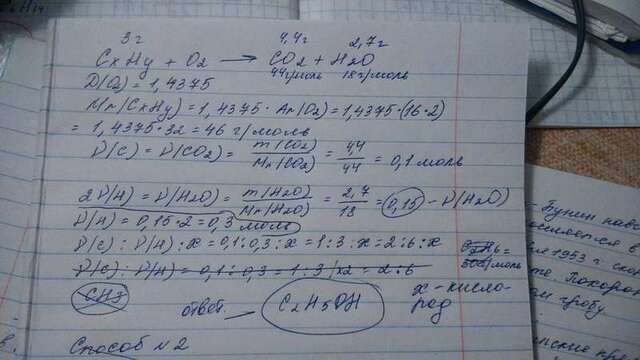 3г 4,4г 2,7г
CxHy + O2 → CO2 + H2O
44г/моль 18г/моль
D(O2) = 1,4375
Mr(CxHy) = 1,4375 · Ar(O2) = 1,4375 · (16·2)
= 1,4375 · 32 = 46 г/моль
ν(C) = ν(CO2) = m(CO2)/Mr(CO2) = 4,4/44 = 0,1 моль
2ν(H) = ν(H2O) = m(H2O)/Mr(H2O) = 2,7/18 = 0,15 – ν(H2O)
ν(H) = 0,15·2 = 0,3 моль
ν(C) : ν(H) : x = 0,1 : 0,3 : x = 1 : 3 : x = 2 : 6 : x
ν(C) : ν(H) = 0,1 : 0,3 = 1 : 3 /·2 = 2 : 6
C2H6 =
г/моль
CH3
ответ. – C2H5OH
x – кисло-
род
Способ №2
Бунин
1953 г.
гробу